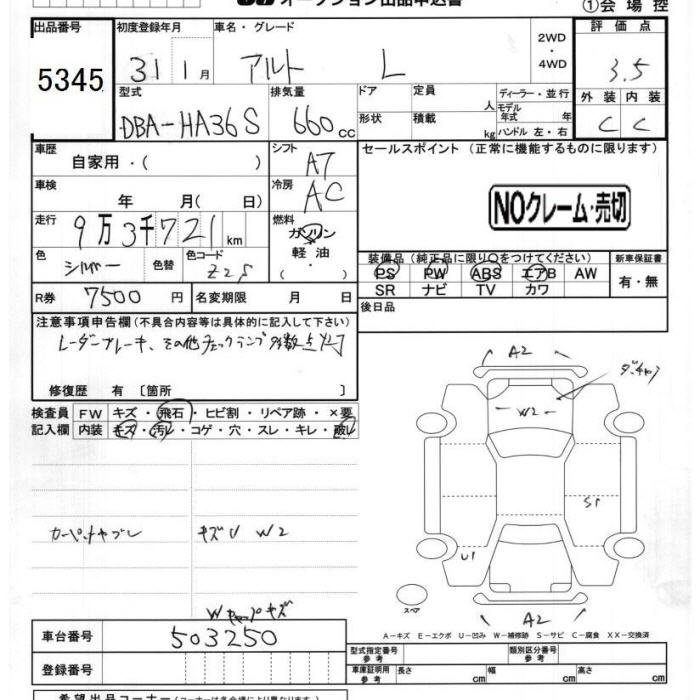 オークション出品申込書
①会場控
出品番号 初度登録年月 車名・グレード 評価点
5345 31 1月 アルト L 2WD・4WD 3.5
型式 排気量 ドア 定員 人 ディーラー・並行 外装 内装
DBA-HA36S 660cc 形状 積載 kg モデル年式 年 ハンドル 左・右 C C
車歴 シフト セールスポイント（正常に機能するものに限ります）
自家用・( ) AT
車検 冷房
年 月(日) AC NOクレーム・売切
走行 燃料
9万3千721km ガソリン・軽油・( )
色 色替 色コード 装備品（純正品に限り○をつけてください） 新車保証書
シルバー Z2S PS PW ABS エアB AW 有・無
SR ナビ TV カワ
R券 7500円 名変期限 月 日 後日品
注意事項申告欄（不具合内容等は具体的に記入して下さい）
レーダーブレーキ、その他チェックランプ多数点灯
修復歴 有〔箇所 〕
検査員 FW キズ・飛石・ヒビ割・リペア跡・×要
記入欄 内装 キズ・汚レ・コゲ・穴・スレ・キレ・破レ
A2
W2
S1
カーペットヤブレ キズU W2
U1
スペア
A2
A－キズ E－エクボ U－凹み W－補修跡 S－サビ C－腐食 XX－交換済
車台番号 503250
型式指定番号 参考 類別区分番号 参考
登録番号 車庫証明用 参考 長さ cm 幅 cm 高さ cm
希望出品コーナー（コーナーは会場により異なります）